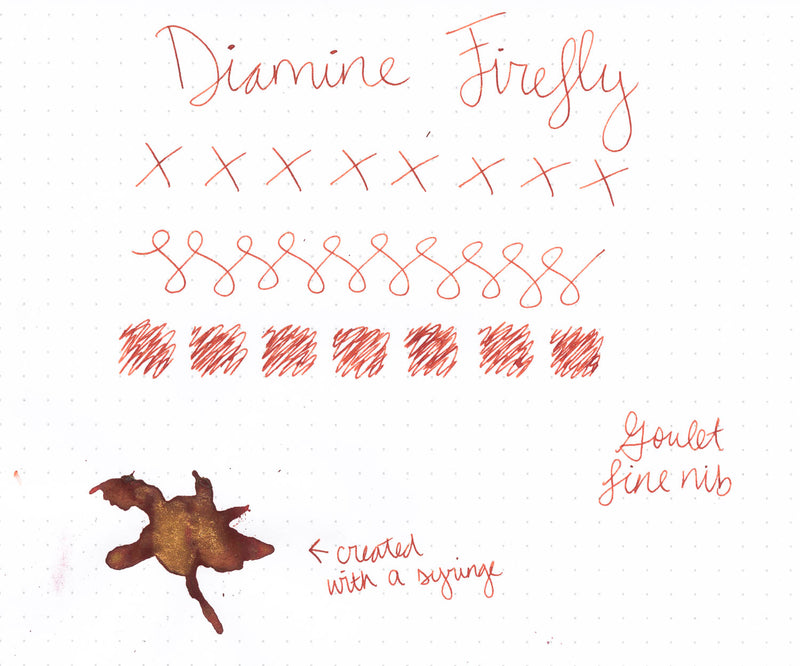 Diamine Firefly
x x x x x x x x
Goulet
fine nib
← created
with a syringe